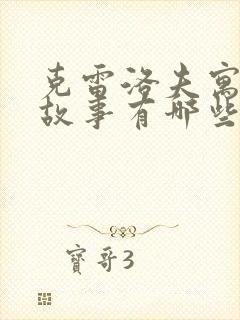 克雷洛夫寓
故事有哪些
寶哥3